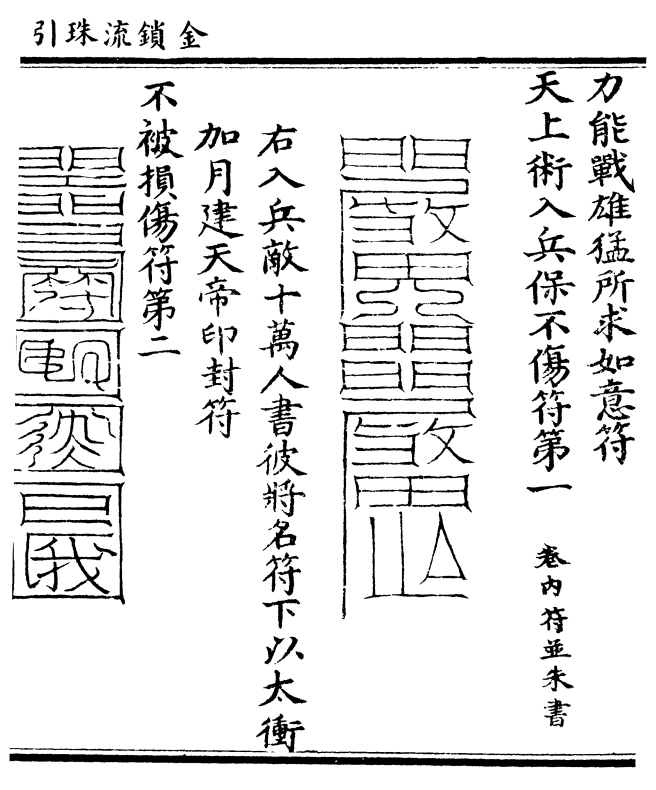 金鎖流珠引
力能戰雄猛所求如意符
天上術入兵保不傷符第一 卷內符並朱書
右入兵敵十萬人書彼將名符下以太衝
加月建天帝印封符
不被損傷符第二